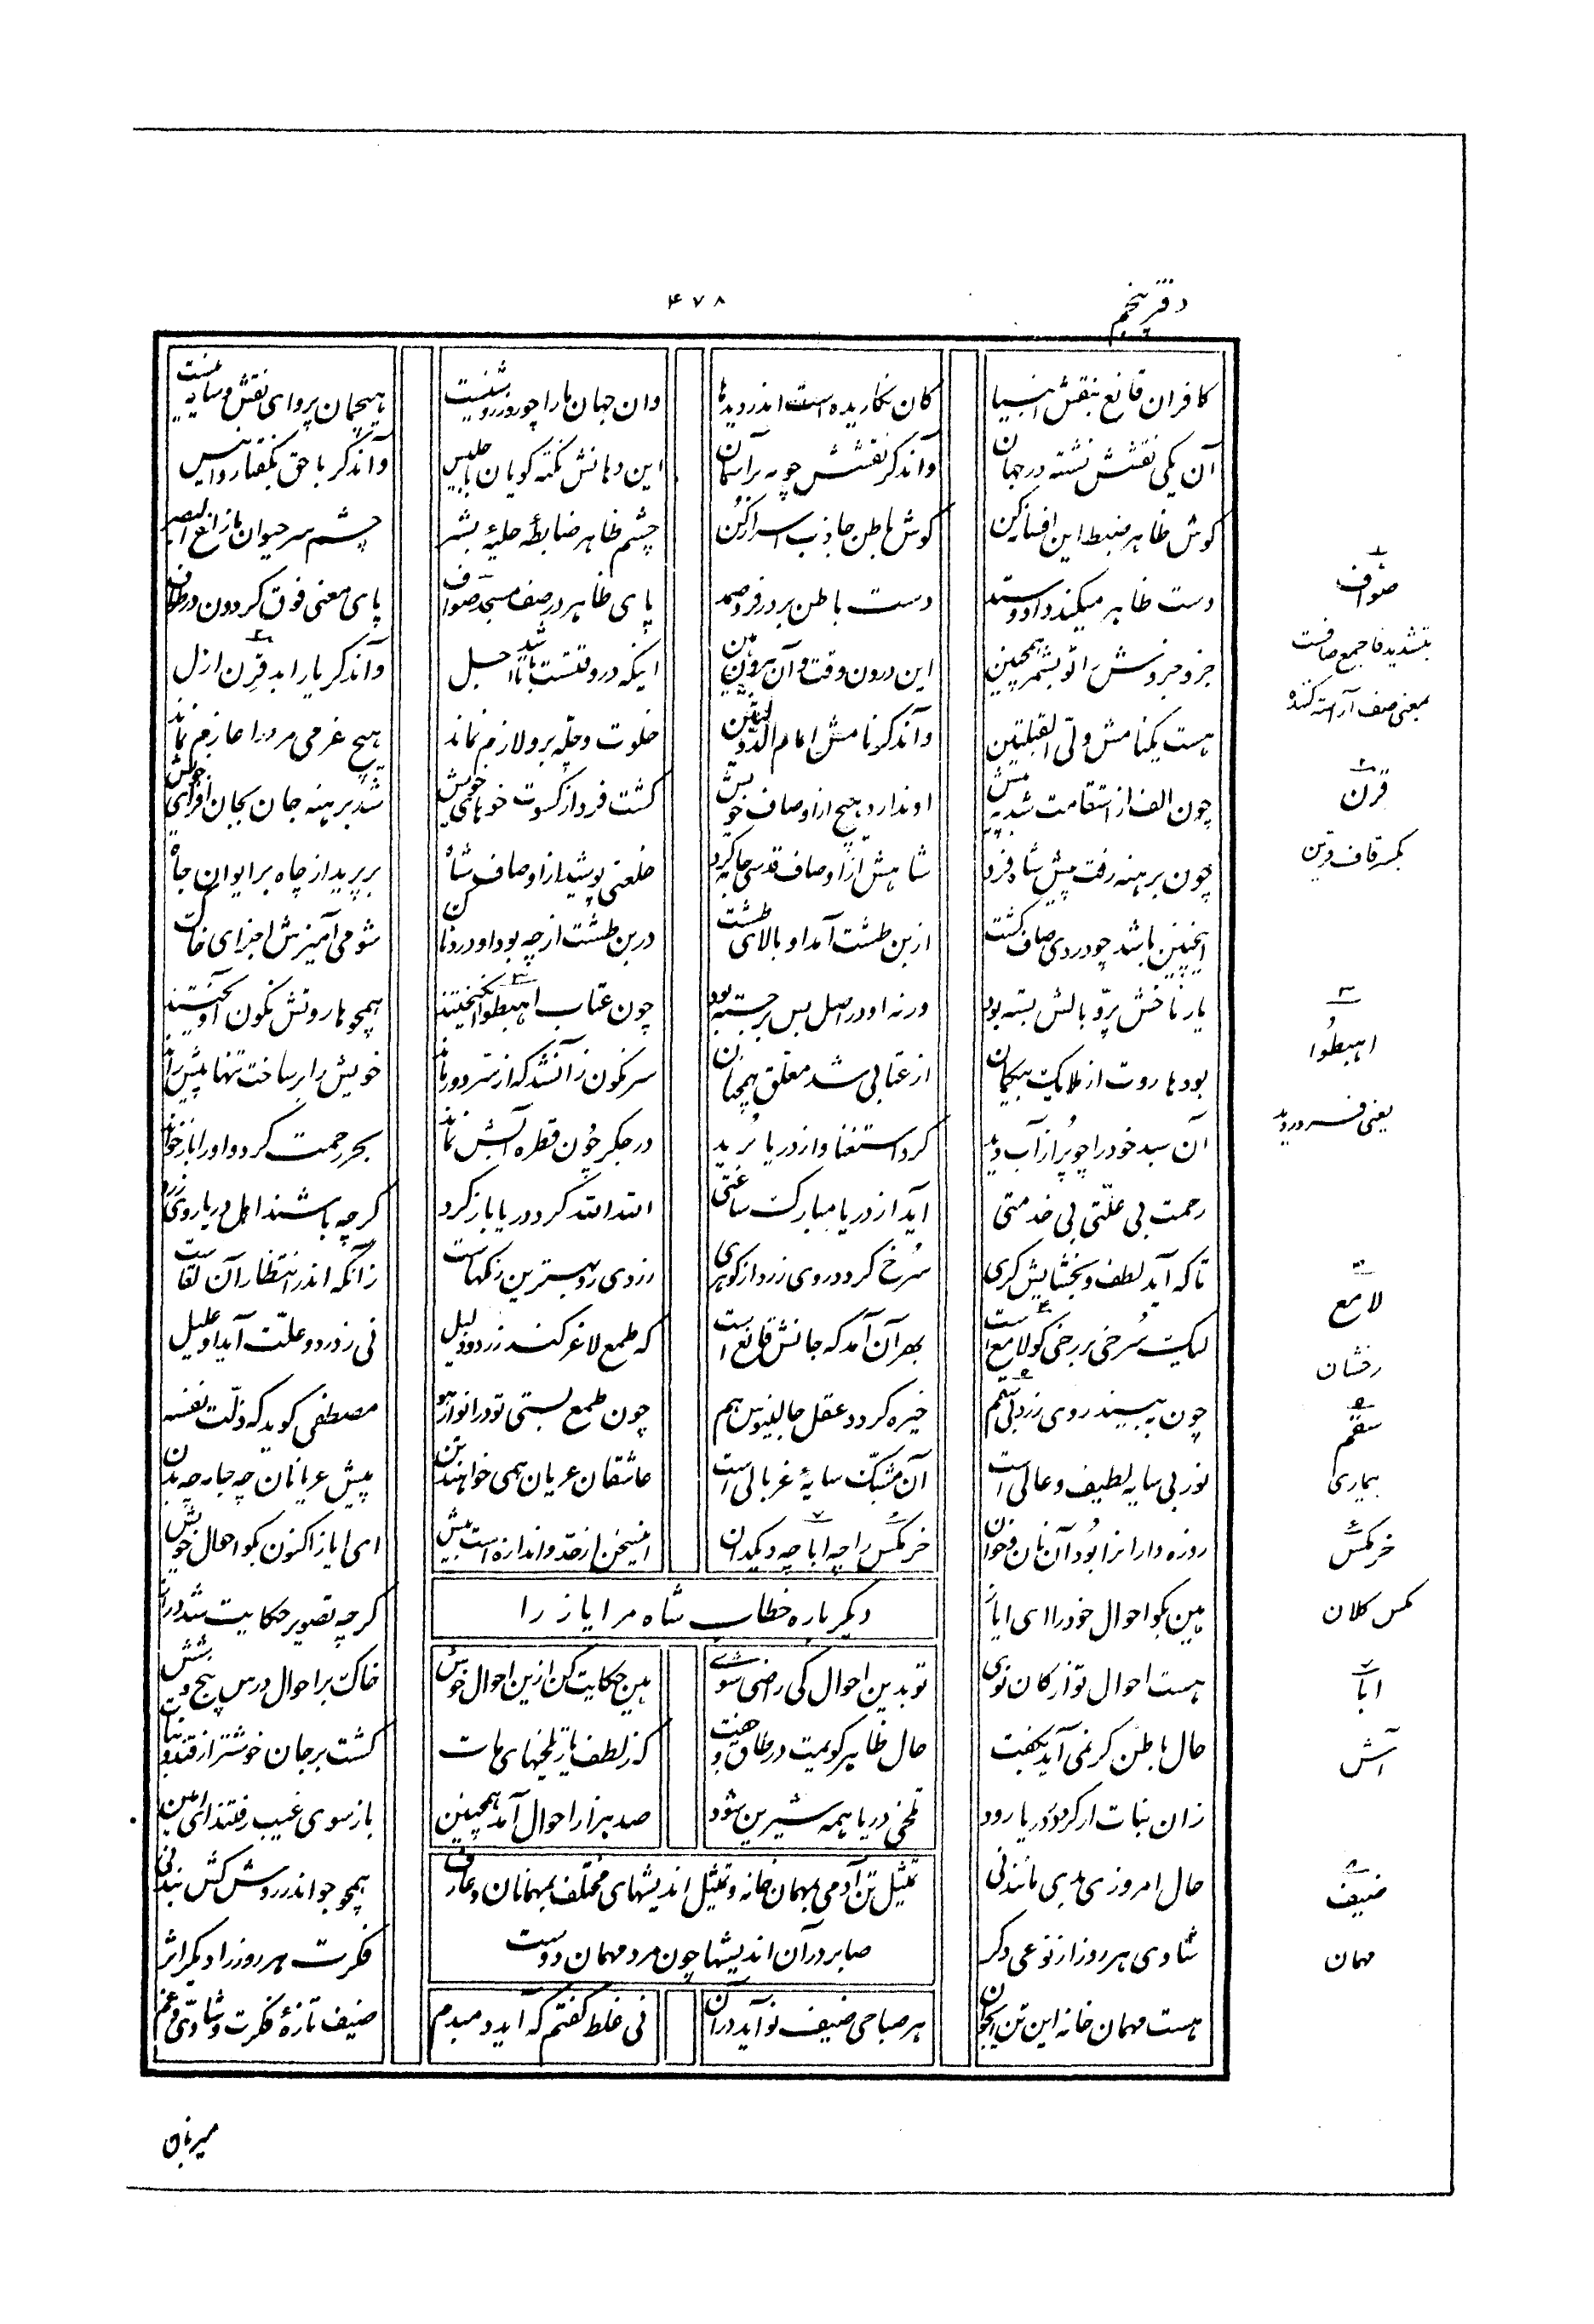 دفتر پنجم
۴۷۸
کافران قانع بنقش انبیا کان نگاریده است اندر دیدها وان جهان ما را چو روز روشنیست هیچمان پروای نقش و سایه نیست
آن یکی نقشش نشسته در جهان وآندگر نقشش چو مه بر آسمان این دهانش نکته گویان با جلیس وآندگر با حق بگفتار و انیس
گوش ظاهر ضبط این افسانه کن گوش باطن جاذب اسرار کن چشم ظاهر ضابطهٔ حلیهٔ بشر چشم سر حیران مازاغ البصر
دست ظاهر میکند داد و ستد دست باطن بر در فرد صمد پای ظاهر در صف مسجد صواف پای معنی فوق گردون در طواف
جزو جزوش را تو بشمر همچنین این درون وقت و آن بیرون حین اینکه در وقتست باشد تا اجل وآندگر یار ابد قرن ازل
هست یکنامش ولی القبلتین وآندگر نامش امام الدولتین خلوت و چلّه برو لازم نماند هیچ غرمی مرورا عازم نماند
چون الف از استقامت شد به پیش او ندارد هیچ از اوصاف خویش گشت فرد از کسوت خوهای خویش شد برهنه جان بجان افزای خویش
چون برهنه رفت پیش شاه فرد شاهش از اوصاف قدسی جامه کرد خلعتی پوشید از اوصاف شاه بر پرید از چاه بر ایوان جاه
اینچنین باشد چو دردی صاف گشت از بن طشت آمد او بالای طشت در بن طشت از چه بود او دردناک شومی آمیزش اجزای خاک
یار ناخوش پرّ و بالش بسته بود ورنه او در اصل بس برجسته بود چون عتاب اهبطوا انگیختند همچو هاروتش نگون آویختند
بود هاروت از ملایک بیگمان از عتابی شد معلق همچنان سرنگون زآنشد که از سر دور ماند خویش را سر ساخت تنها پیش راند
آن سبد خود را چو پُر از آب دید کرد استغنا و از دریا بُرید در جگر چون قطره آبش نماند بحر رحمت کرد و او را باز خواند
رحمت بی علّتی بی خدمتی آید از دریا مبارک ساعتی الله الله گرد دریا بار گرد گرچه باشند اهل دریا روی زرد
تا که آید لطف و بخشایش گری سُرخ گردد روی زرد از گوهری زردی رو بهترین رنگهاست زآنکه اندر انتظار آن لقاست
لیک سُرخی بر رخی کو لامع است بهر آن آمد که جانش قانع است که طمع لاغر کند زرد و ذلیل نی ز درد و علّت آید او علیل
چون به بیند روی زرد بی سقم خیره گردد عقل جالینوس هم چون طمع بستی تو در انوار هو مصطفی گوید که ذلّت نفسه
نور بی سایه لطیف و عالی است آن مشبّک سایهٔ غربالی است عاشقان عریان همی خواهند تن پیش عریانان چه جامه چه بدن
روزه دارانرا بود آن نان و خوان خرمگس را چه ابا چه دیگدان اینسخن از حدّ و اندازه است بیش ای ایاز اکنون بگو احوال خویش
دیگر باره خطاب شاه مر ایاز را
هین بگو احوال خود را ای ایاز گرچه تصویر حکایت شد دراز
هست احوال تو از کان نوی تو بدین احوال کی راضی شوی هین حکایت کن از این احوال خوش خاک بر احوال درس پنج و شش
حال باطن گر نمی آید بگفت حال ظاهر گویمت در طاق و جفت که ز لطف یار تلخیهای مات گشت بر جان خوشتر از قند و نبات
زان نبات ار گرد در دریا رود تلخی دریا همه شیرین شود صد هزار احوال آمد همچنین باز سوی غیب رفتند ای امین
حال امروزی بدی مانند نی همچو جو اندر روش کش بند نی
تمثیل تن آدمی بمهمان خانه و تمثیل اندیشهای مختلف بمهمانان و عارف
صابر در آن اندیشها چون مرد مهمان دوست
شادی هر روز از نوعی دگر فکرت هر روز را دیگر اثر
هست مهمان خانه این تن ای جوان هر صباحی ضیف نو آید در آن نی غلط گفتم که آید دمبدم ضیف تازهٔ فکرت و شادی و غم
صواف
بتشدید فا جمع صافست
بمعنی صف آراسته کننده
قرن
بکسر قاف قرین
اهبطوا
یعنی فرو روید
لامع
رخشان
سقم
بیماری
خرمگس
مگس کلان
ابا
آش
ضیف
مهمان
میزبان